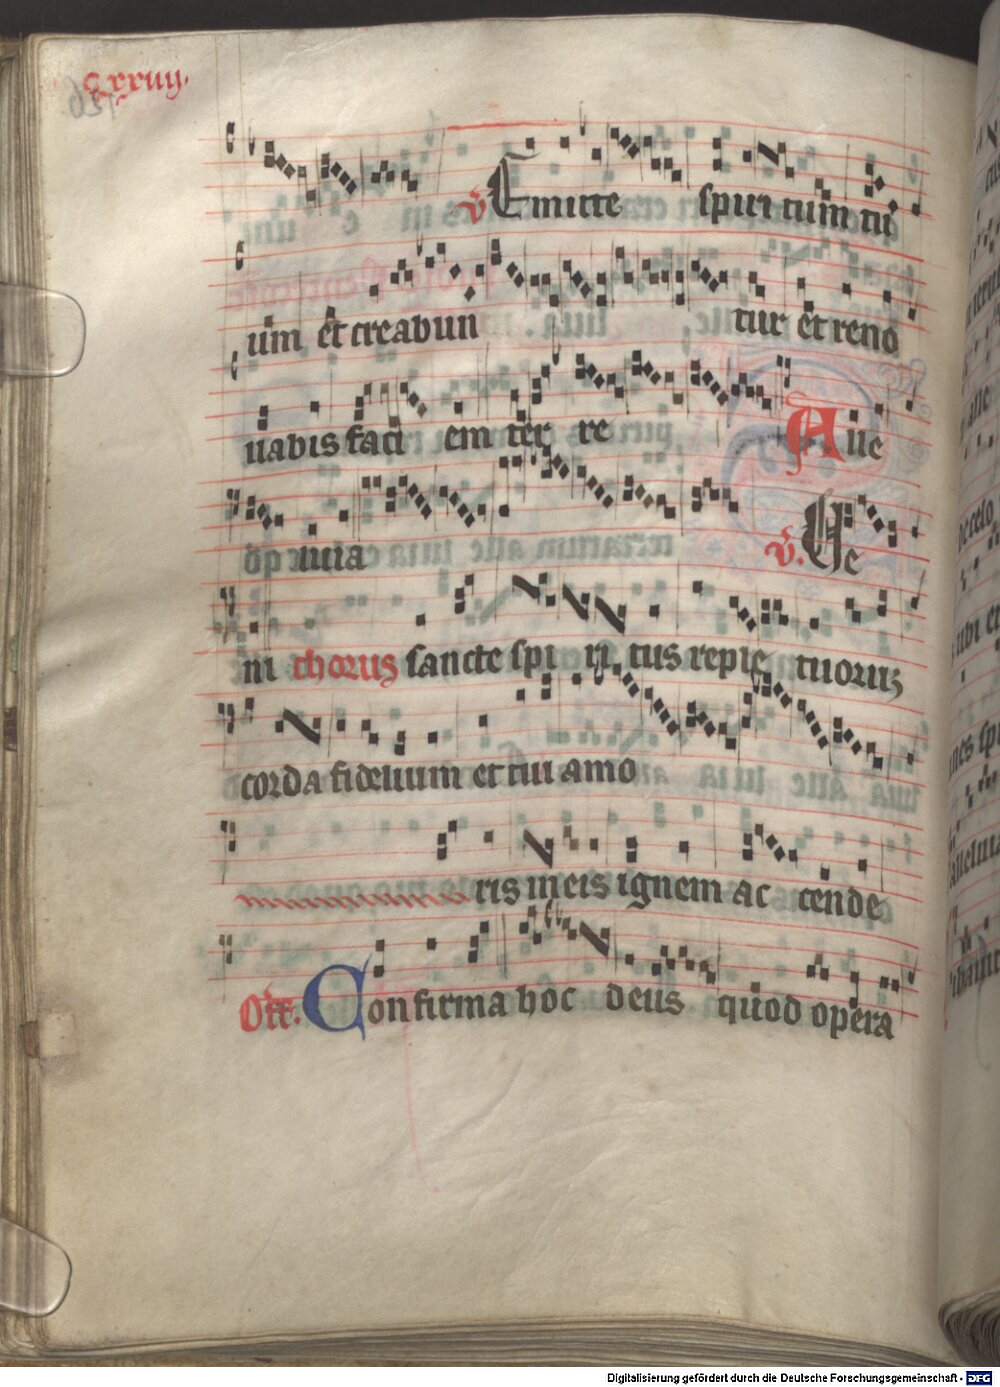 cxxviij.
℣ Emitte spiritum tu
um et creabun tur et reno
uabis faci em ter re Alle
luia ℣. Ve
ni chorus sancte spi ri tus reple tuoruz
corda fidelium et tui amo
ris in eis ignem ac cende
Off. Confirma hoc deus quod opera
Digitalisierung gefördert durch die Deutsche Forschungsgemeinschaft - DFG